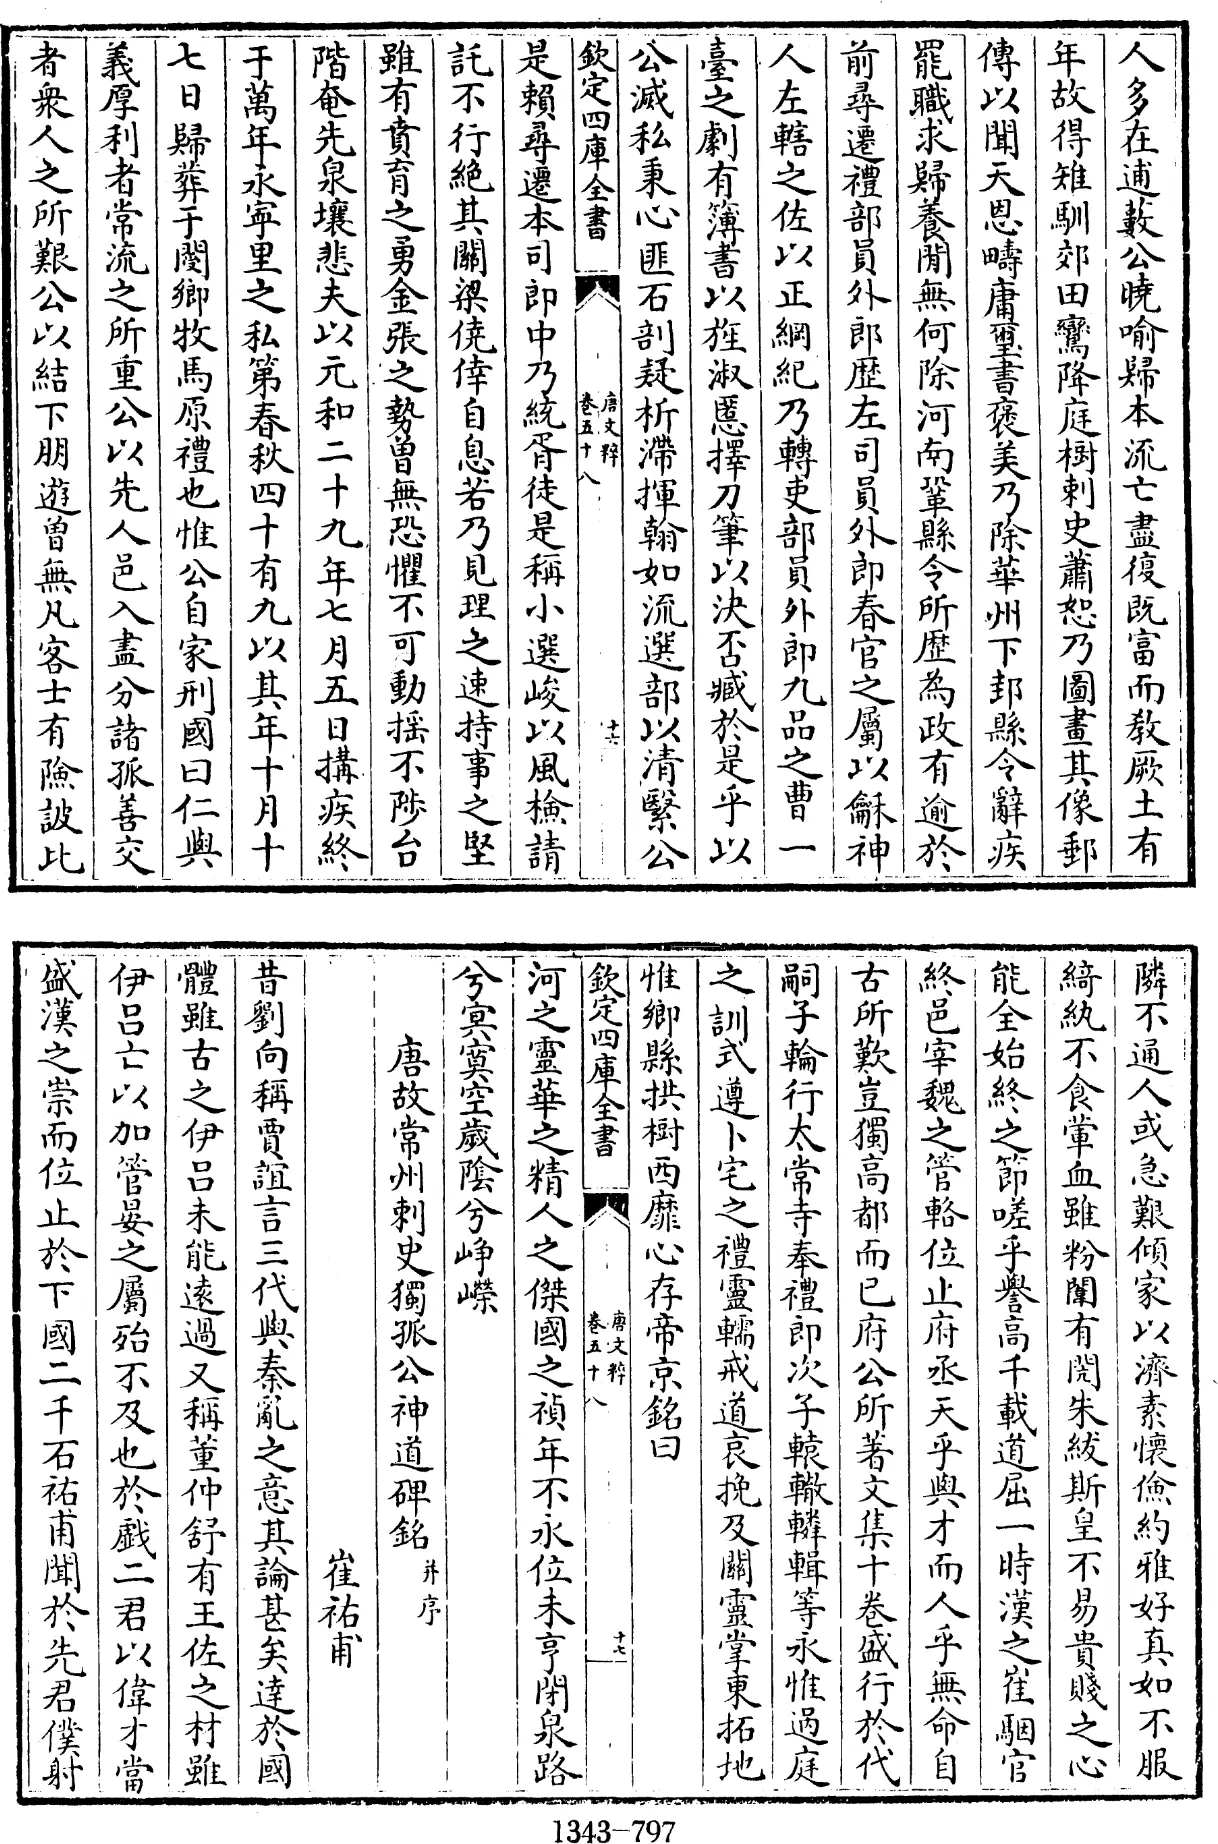 人多在逋藪公曉喻歸本流亡盡復既富而教厥土有
年故得雉馴郊田鸞降庭樹刺史蕭恕乃圖畫其像郵
傳以聞天恩疇庸璽書褒美乃除華州下邽縣令辭疾
罷職求歸養閒無何除河南鞏縣令所歷為政有逾於
前尋遷禮部員外郎歷左司員外郎春官之屬以龢神
人左轄之佐以正綱紀乃轉吏部員外郎九品之曹一
臺之劇有簿書以旌淑慝擇刀筆以決否臧於是乎以
公滅私秉心匪石剖疑析滯揮翰如流選部以清繄公
欽定四庫全書
唐文粹
卷五十八
十六
是賴尋遷本司郎中乃統胥徒是稱小選峻以風檢請
託不行絶其關梁僥倖自息若乃見理之速持事之堅
雖有賁育之勇金張之勢曾無恐懼不可動揺不陟台
階奄先泉壤悲夫以元和二十九年七月五日搆疾終
于萬年永寧里之私第春秋四十有九以其年十月十
七日歸葬于閿鄉牧馬原禮也惟公自家刑國曰仁與
義厚利者常流之所重公以先人邑入盡分諸孤善交
者衆人之所艱公以結下朋遊曾無凡客士有險詖比
隣不通人或急艱傾家以濟素懷儉約雅好真如不服
綺紈不食葷血雖粉闈有閌朱紱斯皇不易貴賤之心
能全始終之節嗟乎譽高千載道屈一時漢之崔駰官
終邑宰魏之管輅位止府丞天乎與才而人乎無命自
古所歎豈獨高都而已府公所著文集十卷盛行於代
嗣子輪行太常寺奉禮郎次子轅轍轔輯等永惟過庭
之訓式遵卜宅之禮靈轜戒道哀挽及關靈掌東拓地
惟鄉縣拱樹西靡心存帝京銘曰
欽定四庫全書
唐文粹
卷五十八
十七
河之靈華之精人之傑國之禎年不永位未亨閉泉路
兮冥寞空歲陰兮崢嶸
唐故常州刺史獨孤公神道碑銘并序
崔祐甫
昔劉向稱賈誼言三代與秦亂之意其論甚矣達於國
體雖古之伊吕未能逺過又稱董仲舒有王佐之材雖
伊吕亡以加管晏之屬殆不及也於戲二君以偉才當
盛漢之崇而位止於下國二千石祐甫聞於先君僕射
1343-797